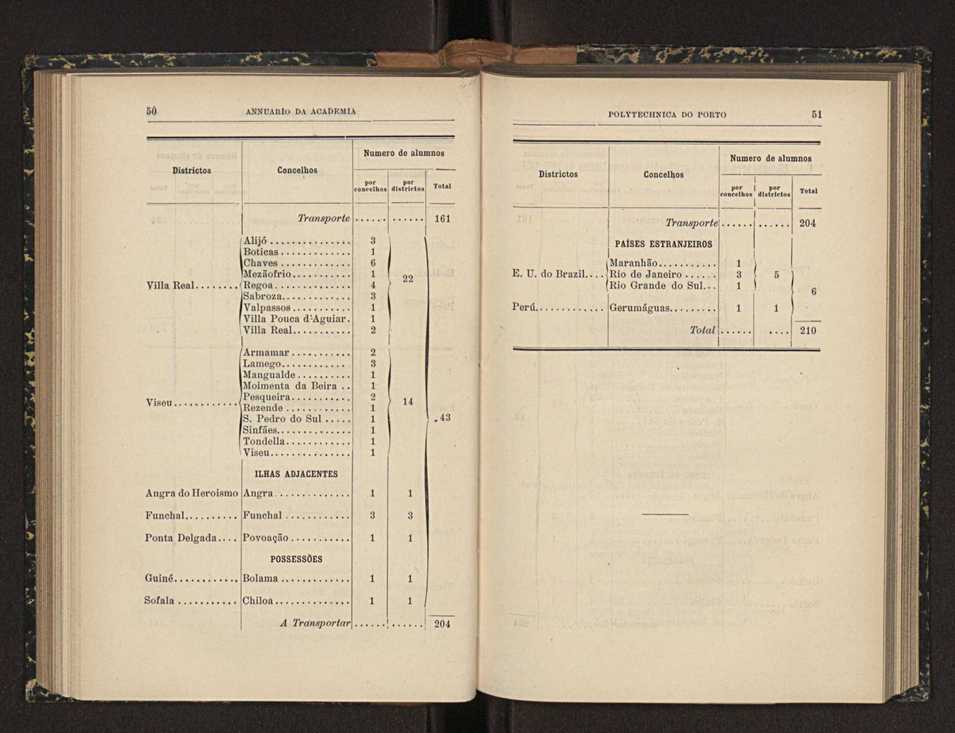 50 ANNUARIO DA ACADEMIA
Districtos Concelhos Numero de alumnos
por concelhos por districtos Total
Transporte ...... ...... 161
Alijó .............. 3
Boticas ............ 1
Chaves ............ 6
Mezãofrio.......... 1
Villa Real........ Regoa............. 4 22
Sabroza............ 3
Valpassos .......... 1
Villa Pouca d'Aguiar. 1
Villa Real.......... 2
Armamar ........... 2
Lamego............ 3
Mangualde .......... 1
Moimenta da Beira .. 1
Pesqueira........... 2
Viseu........... Rezende ............ 1 14
S. Pedro do Sul ..... 1 43
Sinfães............. 1
Tondella............ 1
Viseu............... 1
ILHAS ADJACENTES
Angra do Heroismo Angra............. 1 1
Funchal......... Funchal ............ 3 3
Ponta Delgada.... Povoação ........... 1 1
POSSESSÕES
Guiné............ Bolama ............ 1 1
Sofala ........... Chiloa.............. 1 1
A Transportar ...... ...... 204
POLYTECHNICA DO PORTO 51
Districtos Concelhos Numero de alumnos
por concelhos por districtos Total
Transporte ...... ...... 204
PAÍSES ESTRANJEIROS
Maranhão.......... 1
E. U. do Brazil.... Rio de Janeiro ...... 3 5
Rio Grande do Sul... 1
6
Perú............ Gerumáguas......... 1 1
Total ...... .... 210